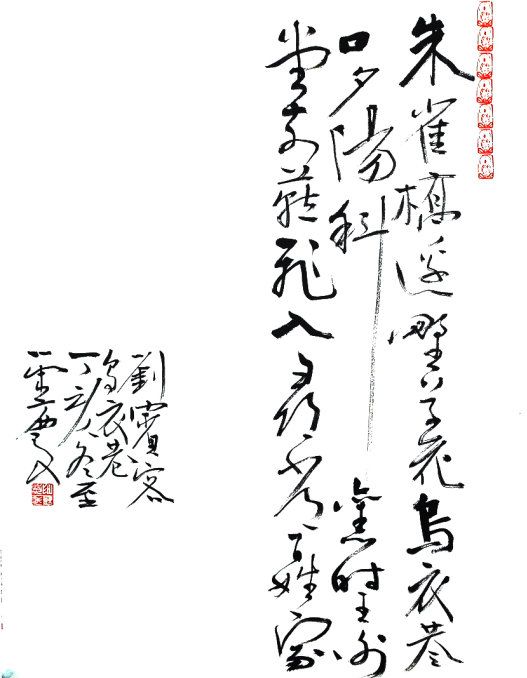 朱雀橋邊野草花烏衣巷
口夕陽斜舊時王謝
堂前燕飛入尋常百姓家
劉賓客
烏衣巷
丁亥冬至